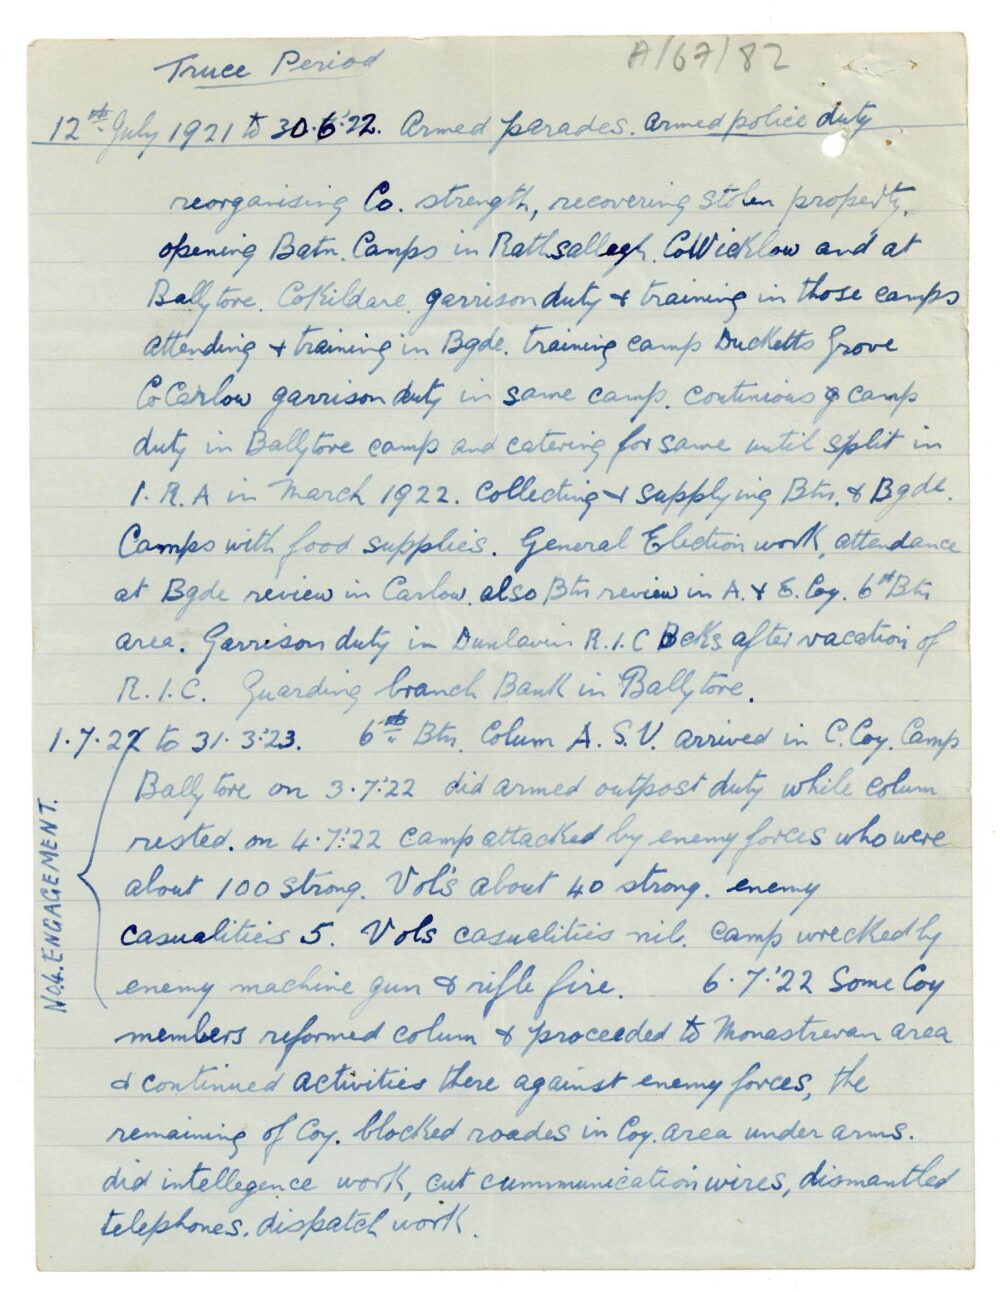 Truce Period
A/67/82
12th July 1921 to 30.6.'22. Armed parades. Armed police duty
reorganising Co. strength, recovering stolen property,
opening Batn. Camps in Rathsallagh. CoWicklow and at
Ballytore. CoKildare. garrison duty & training in those camps
attending & training in Bgde. training camp Ducketts Grove
CoCarlow garrison duty in same camp. continious camp
duty in Ballytore camp and catering for same until split in
I.R.A in March 1922. Collecting & supplying Btn. & Bgde.
Camps with food supplies. General Election work, attendance
at Bgde review in Carlow, also Btn review in A. & E. Coy. 6th Btn
area. Garrison duty in Dunlavin R.I.C Bcks after vacation of
R.I.C. Guarding branch Bank in Ballytore.
1.7.22 to 31.3.'23. 6th Btn. Colum A.S.V. arrived in C.Coy. Camp
Ballytore on 3.7.'22 did armed outpost duty while colum
rested. on 4.7.'22 camp attacked by enemy forces who were
about 100 strong. Vol's about 40 strong. enemy
casualities 5. Vols casualities nil. Camp wrecked by
enemy machine gun & rifle fire. 6.7.'22 Some Coy
members reformed colum & proceeded to Monastrevan area
& continued activities there against enemy forces, the
remaining of Coy. blocked roades in Coy. area under arms.
did intellegence work, cut cummmunication wires, dismantled
telephones. dispatch work.
No.4. ENGAGEMENT.